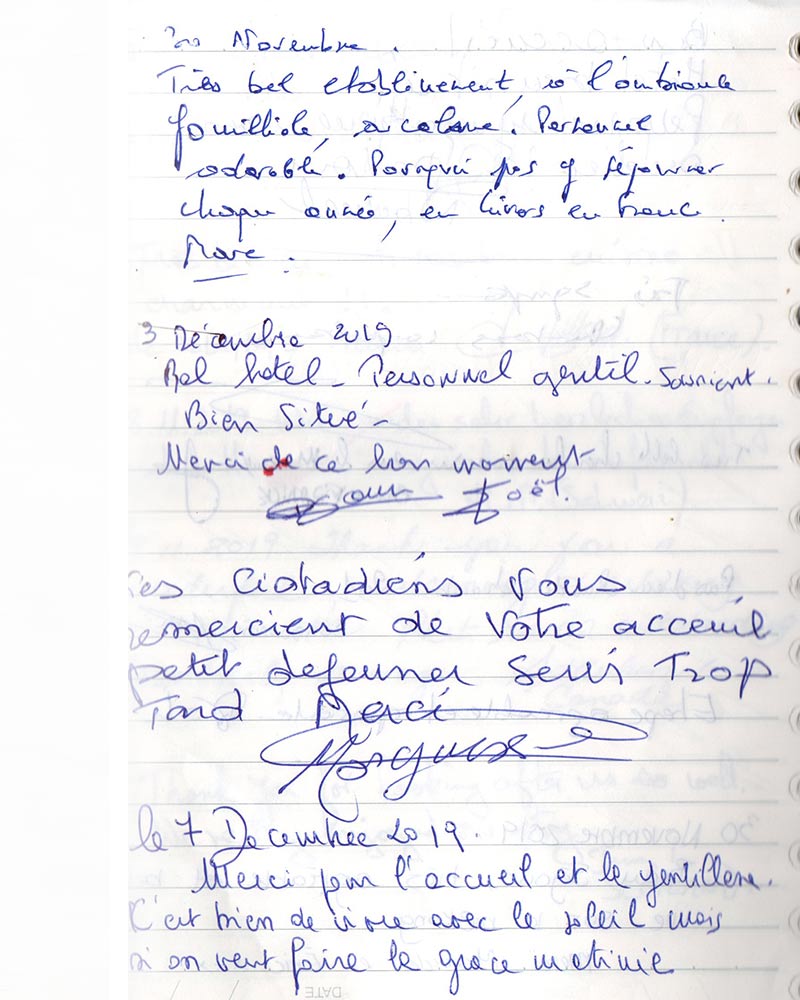 30 Novembre.
Très bel etablinement, à l'ambiance
familliale, calme. Personnel
adorable. Pourquoi pas y séjourner
chaque année, en hivers en
3 Décembre 2019
Bel hotel - Personnel gentil. Souriant.
Bien Situé -
Merci de ce bon moment
Joël.
Les Ciotadiens Vous
remercient de Votre acceuil
petit dejeuner Servi Trop
Tard Merci
le 7 Decembre 2019.
Merci pour l'accueil et la gentillesse.
C'est bien de vivre avec le soleil mais
si on veut faire la grace matinie
DATE